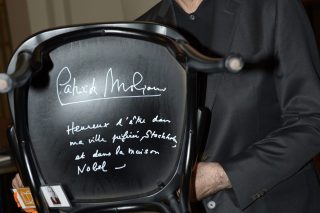 Patrick Modiano
Heureux d'être dans
ma ville préférée, Stockholm
et dans la maison
Nobel —